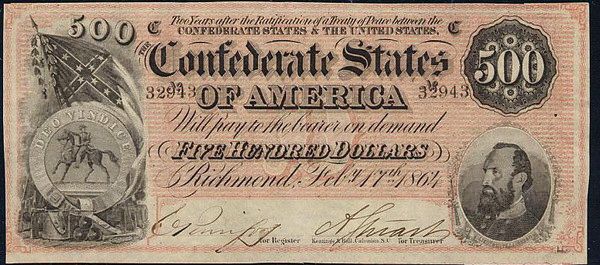 Two Years after the Ratification of a Treaty of Peace between the
CONFEDERATE STATES & THE UNITED STATES,
500 C C
THE
Confederate States
500
32943 32943
OF AMERICA
DEO VINDICE
Will pay to the bearer on demand
FIVE HUNDRED DOLLARS
Richmond, Feby 17th 1864
for Register Keatinge & Ball, Columbia, S.C. for Treasurer